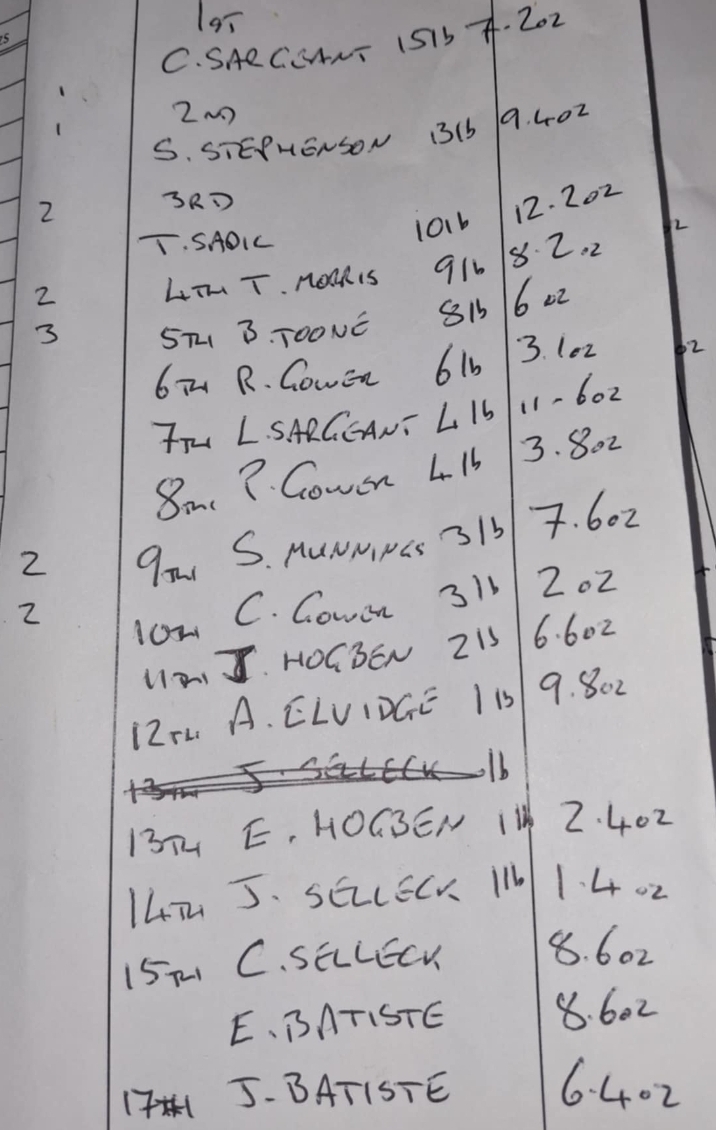 1ST
C. SARGEANT 15lb 7.2oz
2ND
S. STEPHENSON 13lb 9.4oz
3RD
2
T. SADIC 10lb 12.2oz
2 4TH T. MORRIS 9lb 8.2oz
3 5TH B. TOONÉ 8lb 6oz
6TH R. GOWER 6lb 3.1oz
7TH L. SARGEANT 4lb 11-6oz
8TH P. GOWER 4lb 3.8oz
2 9TH S. MUNNINGS 3lb 7.6oz
2 10TH C. GOWER 3lb 2oz
11TH J. HOGBEN 2lb 6.6oz
12TH A. ELVIDGE 1lb 9.8oz
13TH J. SELLECK 1lb
13TH E. HOGBEN 1lb 2.4oz
14TH J. SELLECK 1lb 1.4oz
15TH C. SELLECK 8.6oz
E. BATISTE 8.6oz
17TH J-BATISTE 6.4oz